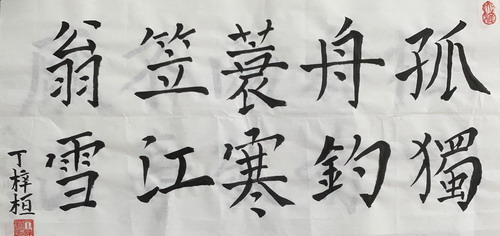 孤舟蓑笠翁
獨釣寒江雪
丁梓桓